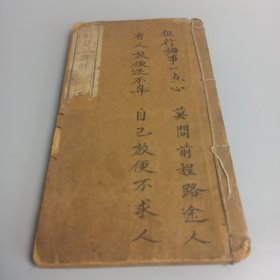 但行好事一点心
莫問前程路途人
有人放便还不早
自己放便不求人